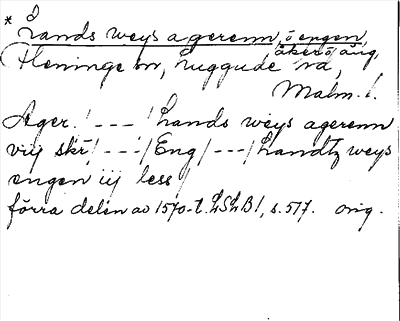 * Lands weys agerenn, ö engen,
åker o äng
Fleninge sn, Luggude hd,
Malm. l.
Ager /---/ Lands weys agerenn
vij skr /---/ Eng /---/ Landtz weys
engen iij less /
förra delen av 1570-t. LSLB 1, s. 517. orig.